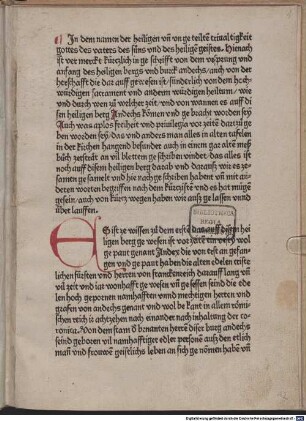 In dem namen der heiligen vñ vn ge teiltē triualtigkeit
gottes des vaters des süns vnd des heiligē geistes. Hienach
ist ver mercket kürtzlich in geschrifft von dem vrsprung vnd
anfang des heiligen bergs vnd burck andechs, auch von der
herschafft die dar auff gewesen ist, sünderlich von dem hoch-
wirdigen sacrament vnd anderm wirdigem heiltum, wie
vnd durch wen zů welcher zeit, vnd von wannen es auff di
sen heiligen berg Andechs kōmen vnd ge bracht worden sey
Auch was aplos freiheit vnd priuilegia vor zeitē dartzů ge
ben worden sey, das vnd anders man alles in alten tafelen
in der kirchen hangend besunder auch in einem gar altē meß
bůch zersträt an vil blettern geschriben vindet, das alles ist
noch auff disem heiligen berg darab vnd darauß, wir es ze-
samen ge samelt vnd hie nach ge schriben habent vñ mit an
deren worten begriffen nach dem kürtzistē vnd es hat müge
gesein, auch von kürtz wegen haben wirs ge lassen vnnd
über lauffen.
ES ist ze wissen zů dem erstē das auff disem hei
ligen berg ge wesen ist vor zeitē ein vest wol
ge paut genant Andex die von erst an gefan-
gen vnd ge paut haben die alten edelen criste
lichen fürsten vnd herren von franckenreich darauff lang vñ
vil zeit vnd iar wonhafft ge wesen vñ ge sessen seind die ede
len hoch gepornen namhafften vnnd mechtigen herren vnd
grafen von andechs genant vnd wol be kant in allem römi-
schen reich
Von dem stam d benanten herrē diser burg andechs
seind geboren vil namhafftiger edler personē auß den etlich
man vnd frowē geistlichs leben an sich ge nōmen habē vñ